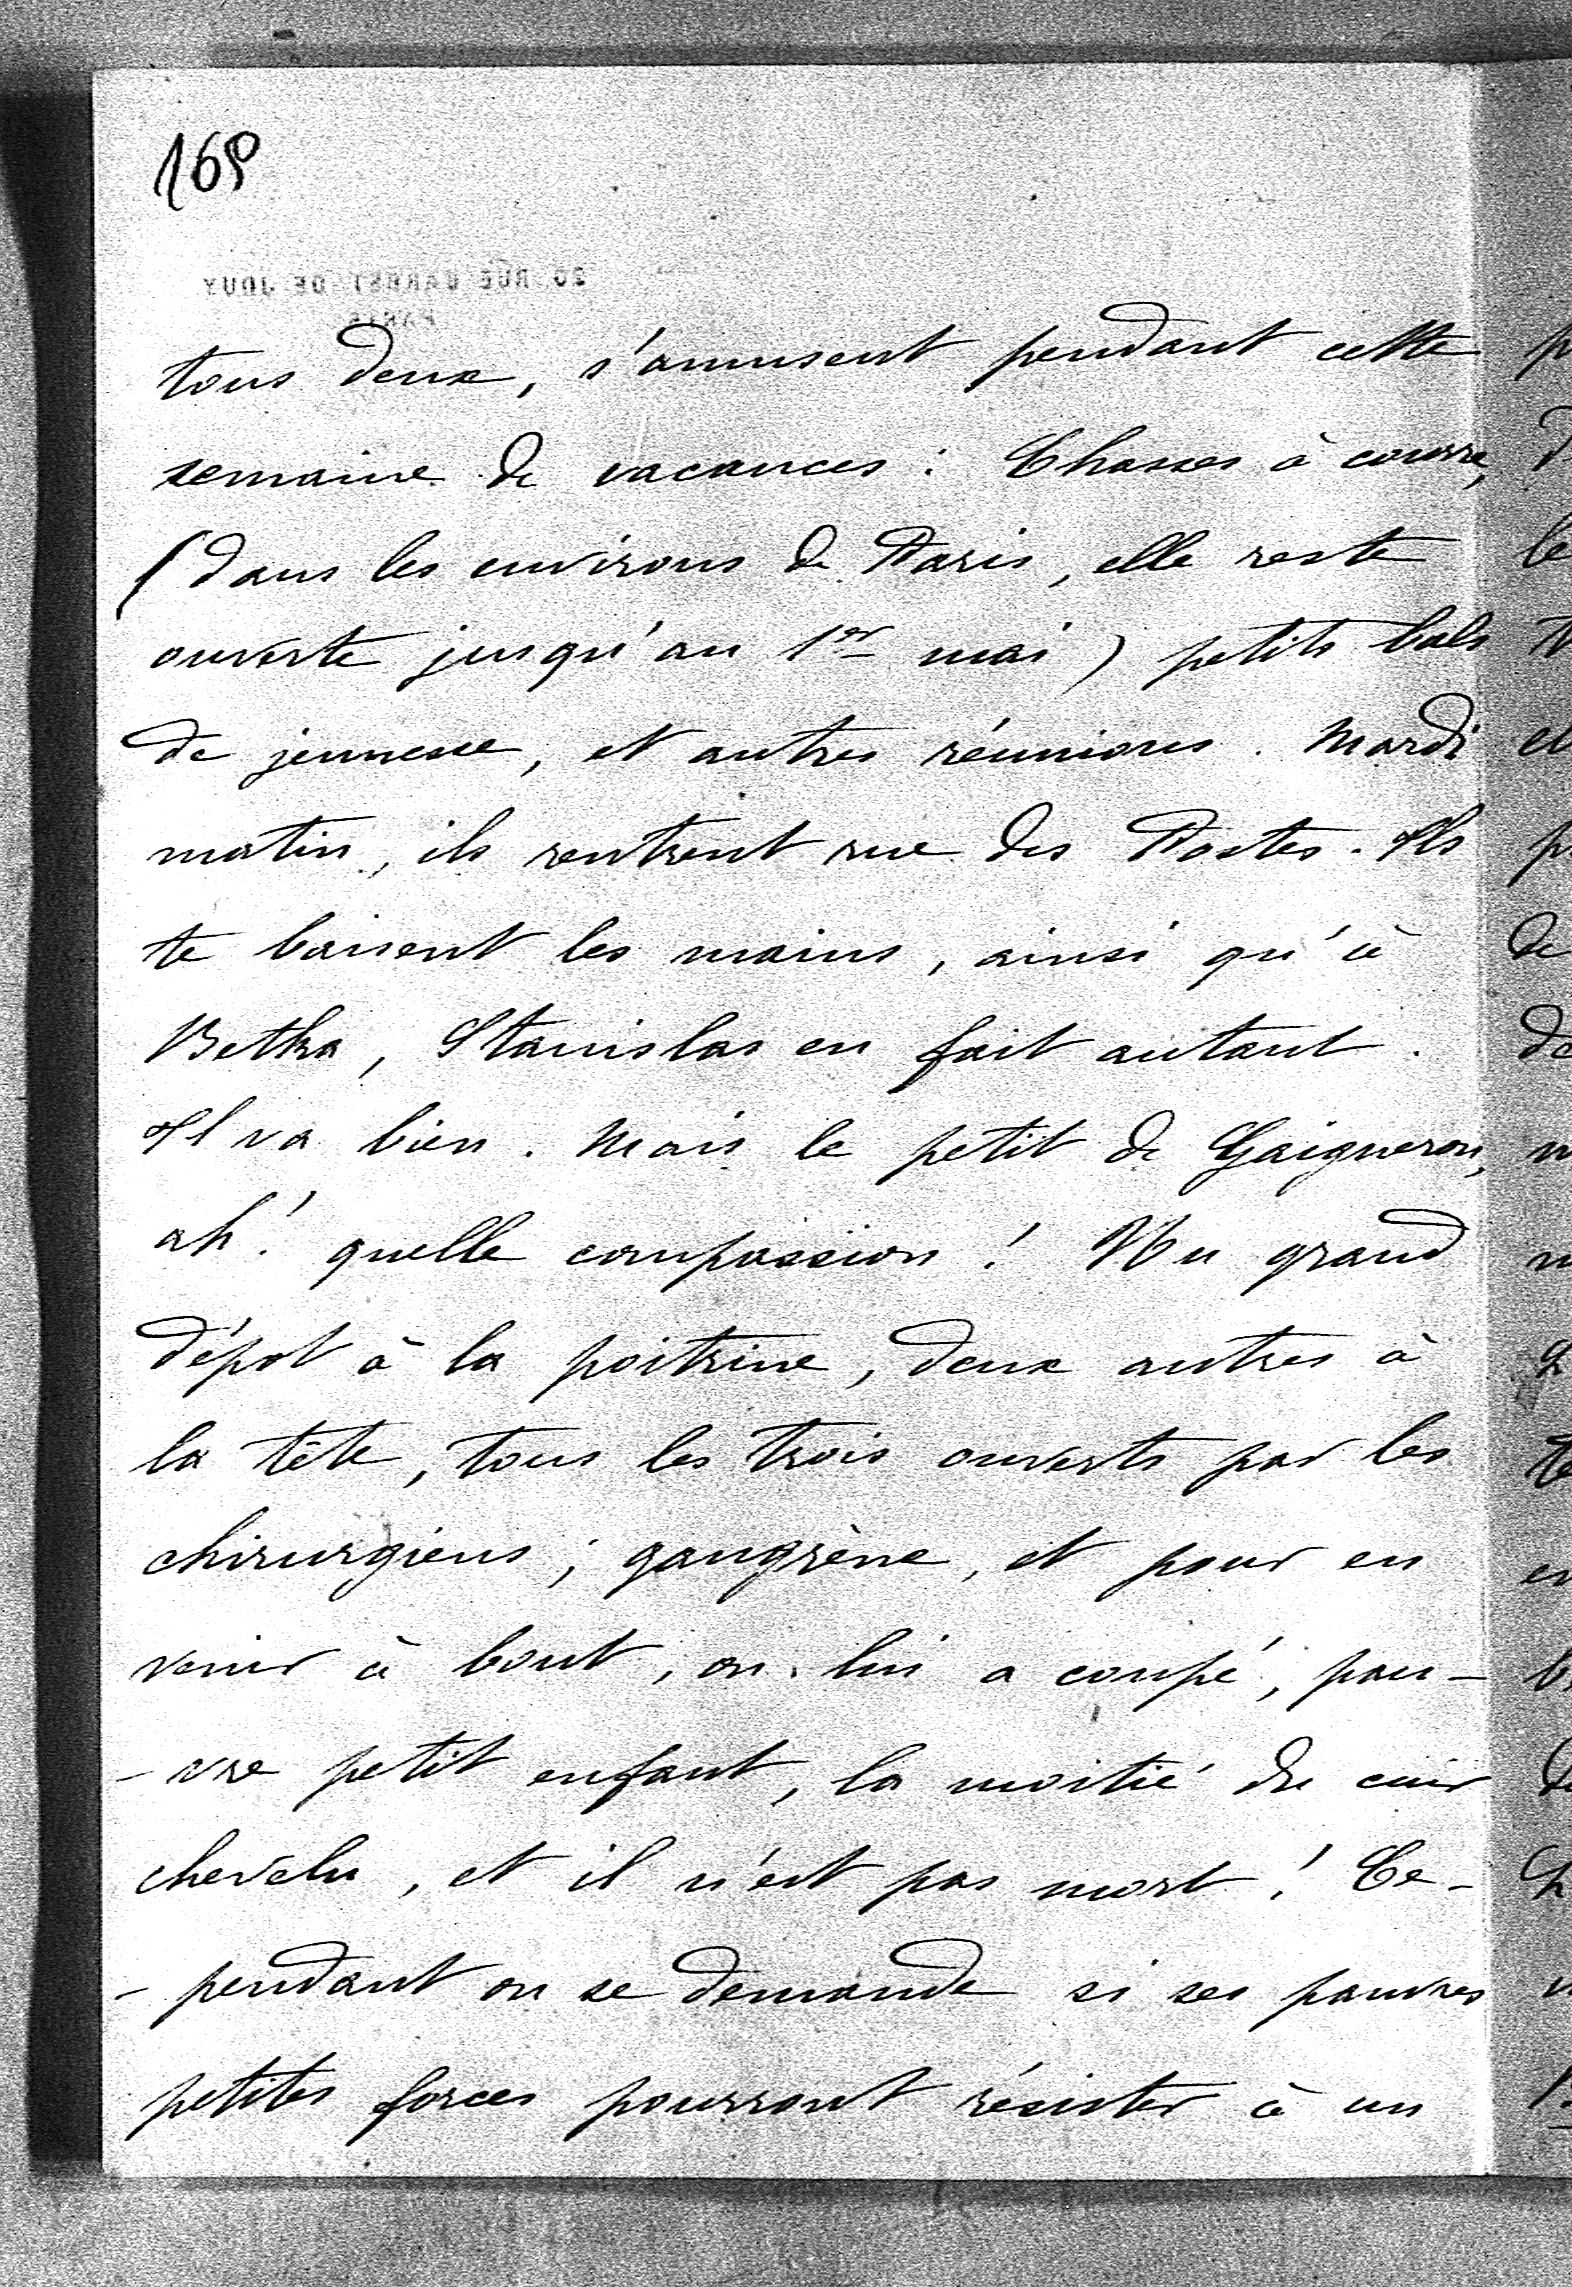 169
20 RUE BARBET DE JOUY
PARIS
tous deux, s'amusent pendant cette
semaine de vacances : Chasses à courre,
(dans les environs de Paris, elle reste
ouverte jusqu'au 1er mai) petits bals
de jeunesse, et autres réunions. Mardi
matin, ils rentrent rue des Postes. Ils
te baisent les mains, ainsi qu'à
Betka, Stanislas en fait autant.
Il va bien. Mais le petit de Gaigneron,
ah! quelle compassion! Un grand
dépot à la poitrine, deux autres à
la tête, tous les trois ouverts par les
chirurgiens ; gangrène, et pour en
venir à bout, on lui a coupé, pau-
-vre petit enfant, la moitié du cuir
chevelu, et il n'est pas mort! Ce-
-pendant on se demande si ses pauvres
petites forces pourront résister à un